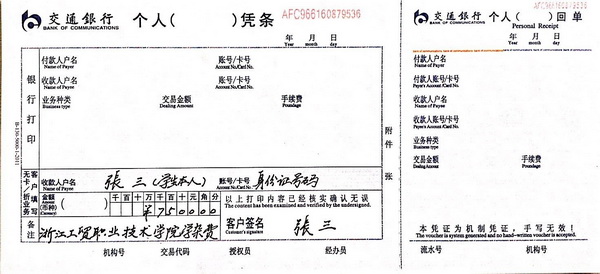 交通银行 BANK OF COMMUNICATIONS 个人( )凭条 AFC966160879536
年 月 日
Year month day
付款人户名 账号/卡号
Name of Payer Account No./Card No.
收款人户名 账号/卡号
Name of Payee Account No./Card No.
业务种类 交易金额 手续费
Business type Dealing Amount Poundage
银行打印
附件 张
客户填写
无卡/折业务
收款人户名 張三(学生本人) 账号/卡号 身份证号码
Name of Payee Account No./Card No.
金额 (币种) (Currency) 千 百 十 万 千 百 十 元 角 分
¥ 7 5 0 0 0 0
以上打印内容已经核实确认无误
The content has been examined and verified by the undersigned.
备注 浙江工贸职业技术学院学杂费
客户签名 張三
Customer's signature
机构号 交易代码 授权员 经办员
交通银行 BANK OF COMMUNICATIONS 个人( )回单
Personal Receipt
AFC966160879536
年 月 日
Year month day
付款人户名
付款人账号/卡号
Payer's Account/Card No.
收款人户名
Name of Payee
收款人账号/卡号
Payee's Account/Card No.
业务种类
Business type
交易金额 手续费
Dealing Amount Poundage
本凭证为机制凭证,手写无效!
The voucher is system generated and no hand-written voucher is accepted.
流水号 机构号